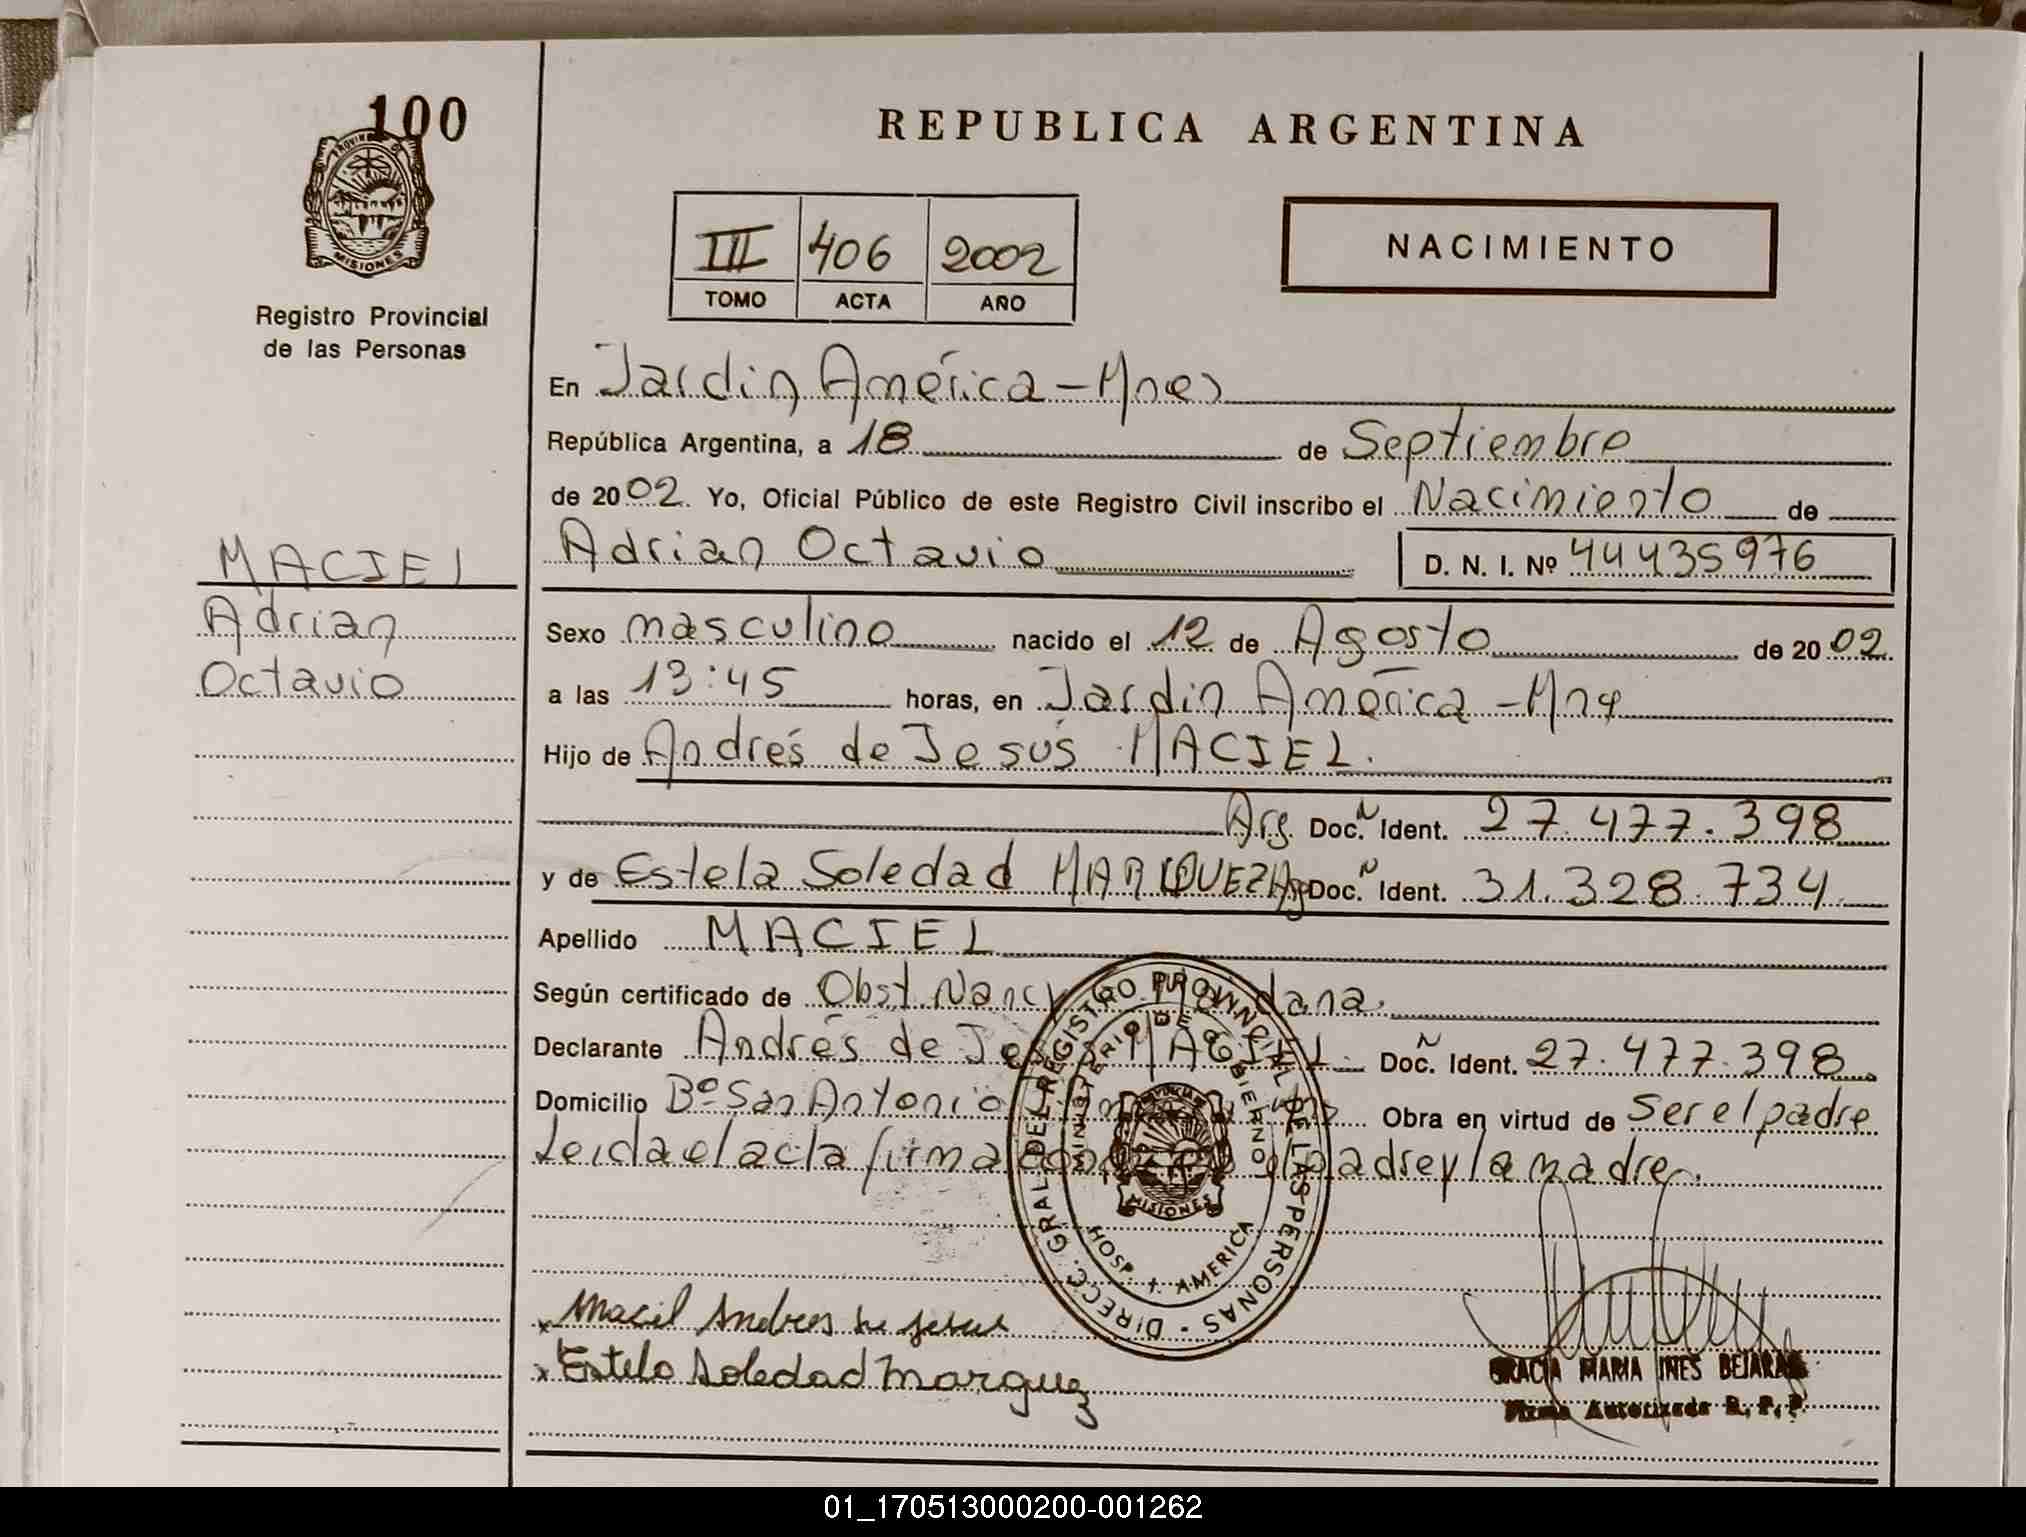 100
PROVINCIA DE
MISIONES
Registro Provincial
de las Personas
MACIEL
Adrian
Octavio
REPUBLICA ARGENTINA
III 406 2002
TOMO ACTA AÑO
NACIMIENTO
En Jardin América - Mnes
República Argentina, a 18 de Septiembre
de 2002. Yo, Oficial Público de este Registro Civil inscribo el Nacimiento de
Adrian Octavio D. N. I. Nº 44435976
Sexo masculino nacido el 12 de Agosto de 2002
a las 13:45 horas, en Jardin América - Mnes
Hijo de Andrés de Jesús MACIEL.
Arg. Doc. Ident. 27.477.398
y de Estela Soledad MARQUEZ Arg Doc. Ident. 31.328.734
Apellido MACIEL
Según certificado de Obst Nancy dana.
Declarante Andrés de Jesús MACIEL Doc. Ident. 27.477.398
Domicilio Bº San Antonio Obra en virtud de ser el padre
Leida el acta firma el padre y la madre.
DIRECC. GRAL. DEL REGISTRO PROVINCIAL DE LAS PERSONAS
MINISTERIO DE GOBIERNO
MISIONES
HOSP. J. AMERICA
x Maciel Andres de Jesus
x Estela Soledad Marquez
GRACIA MARIA INES BEJARANO
Firma Autorizada R. P. P.
01_170513000200-001262